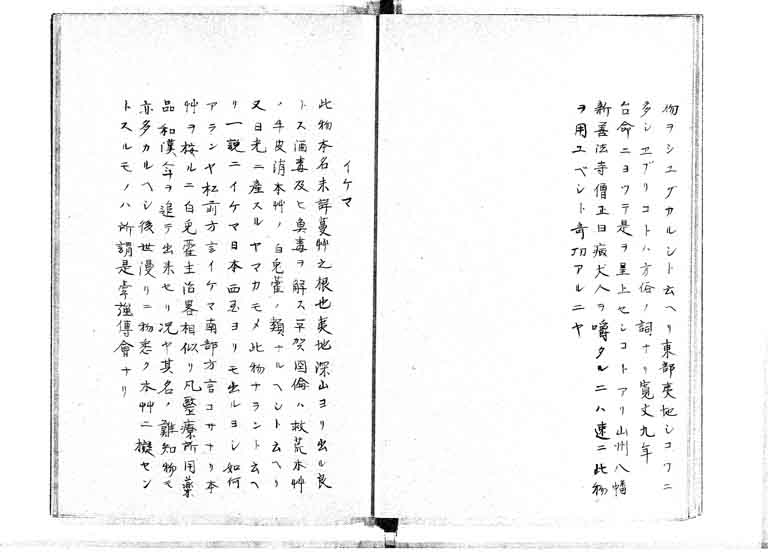 物ヲシユグカルシト云ヘリ東部夷地シコツニ
多シヱブリコトハ方俗ノ詞ナリ寛文九年
台命ニヨツテ是ヲ呈上セシコトアリ山州八幡
新善法寺僧正曰瘈犬人ヲ嚙タルニハ速ニ此物
ヲ用ユベシト奇功アルニヤ
イケマ
此物本名未詳蔓艸之根也夷地深山ヨリ出ル良
トス酒毒及ヒ魚毒ヲ解ス平賀国倫ハ救荒本艸
ノ牛皮消本艸ノ白兎藿ノ類ナルヘシト云ヘリ
又日光ニ産スルヤマカモメ此物ナラント云ヘ
リ一説ニイケマ日本西国ヨリモ出ルヨシ如何
アランヤ松前方言イケマ南部方言コサナリ本
艸ヲ按ルニ白兎藿主治畧相似リ凡醫療所用薬
品和漢年ヲ追テ出来セリ况ヤ其名ノ難知物モ
亦多カルヘシ後世漫リニ物悉ク本艸ニ擬セン
トスルモノハ所謂是牽強傅會ナリ